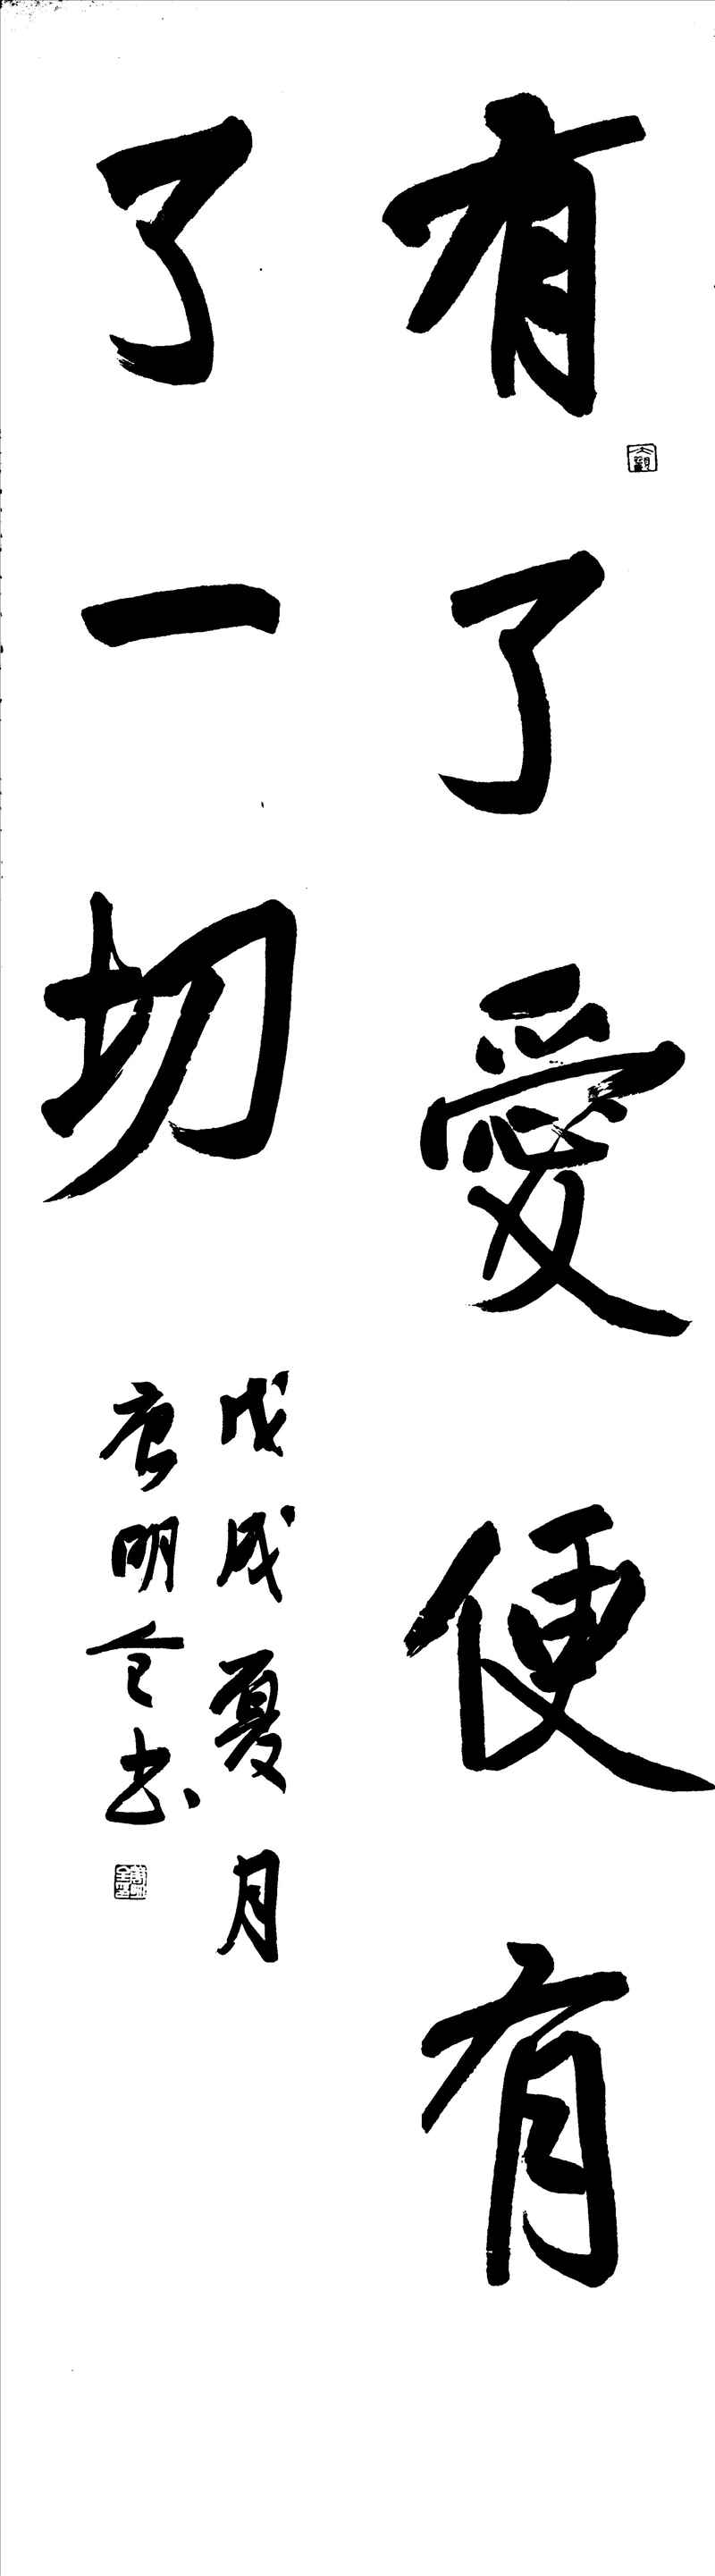 有了愛便有
了一切
戊戌夏月
唐明全书
大觀